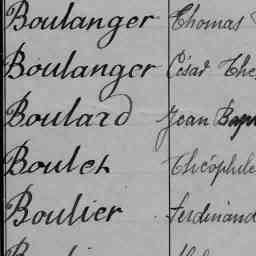 Boulanger Thomas
Boulanger César
Boulard Jean
Boulet Théophile
Boulier Ferdinand